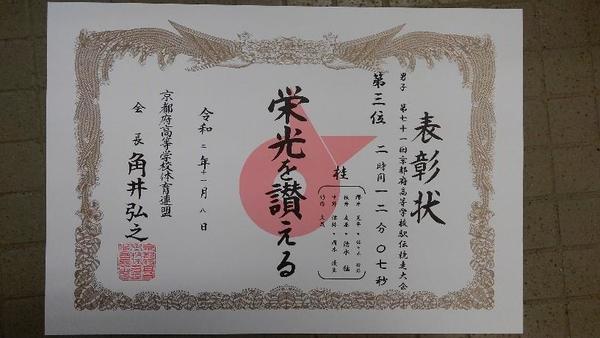 表彰状
男子 第七十一回京都府高等学校駅伝競走大会
第三位 二時間一二分〇七秒
桂
栄光を讃える
令和二年十一月八日
京都府高等学校体育連盟
会長 角井弘之